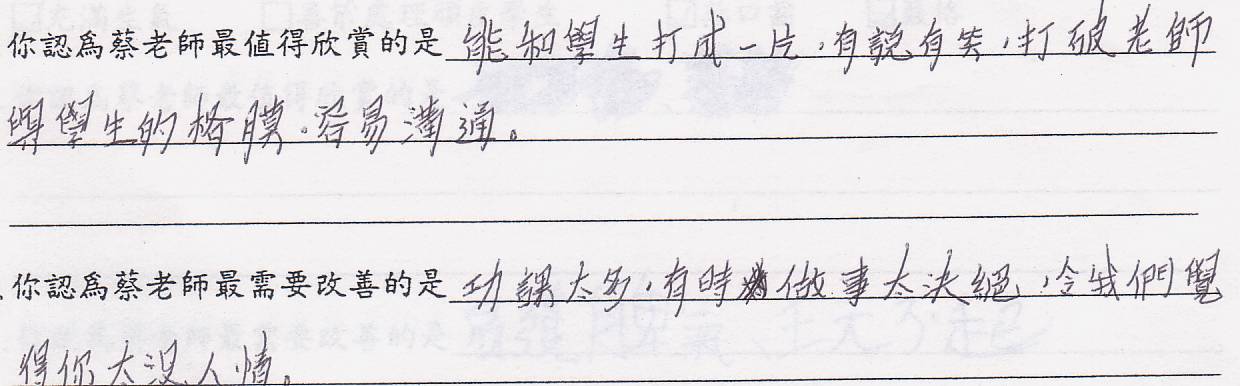 你認爲蔡老師最值得欣賞的是 能和學生打成一片，有說有笑，打破老師
與學生的格膜。容易溝通。
你認爲蔡老師最需要改善的是 功課太多，有時做事太決絕，令我們覺
得你太沒人情。